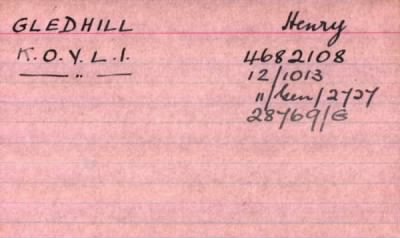 GLEDHILL Henry
K.O.Y.L.I. 4682108
— " — 12/1013
"/Gen/2727
28769/G